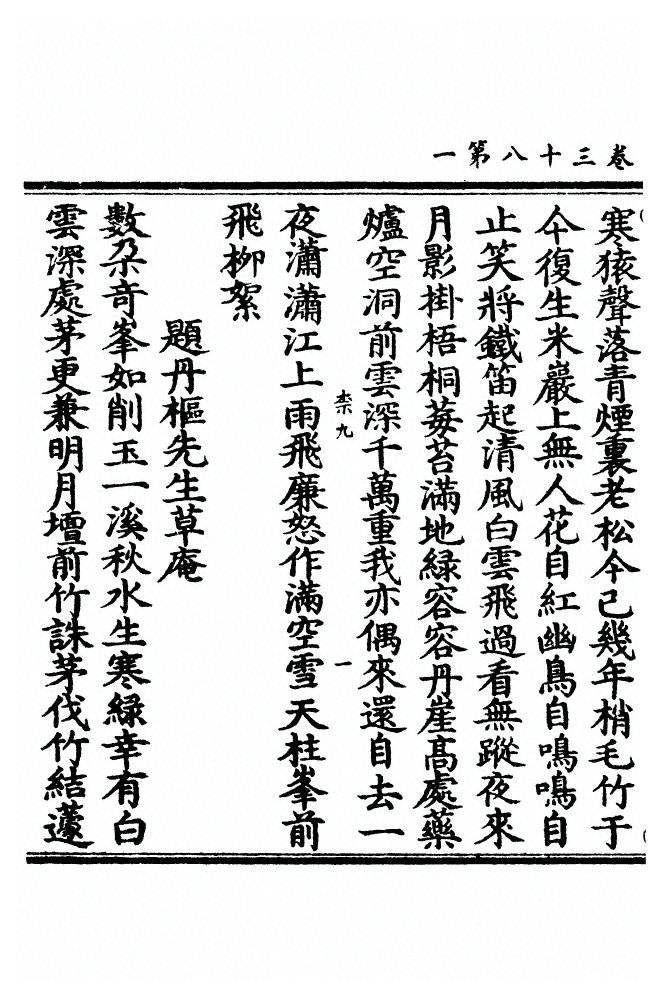 卷三十八第一
寒猿聲落青煙裏老松今已幾年梢毛竹于
今復生米巖上無人花自紅幽鳥自鳴鳴自
止笑將鐵笛起清風白雲飛過看無蹤夜來
月影掛梧桐莓苔滿地綠容容丹崖高處藥
爐空洞前雲深千萬重我亦偶來還自去一
柰九
一
夜瀟瀟江上雨飛廉怒作滿空雪天柱峯前
飛柳絮
題丹樞先生草庵
數朵奇峯如削玉一溪秋水生寒綠幸有白
雲深處茅更兼明月壇前竹誅茅伐竹結蘧